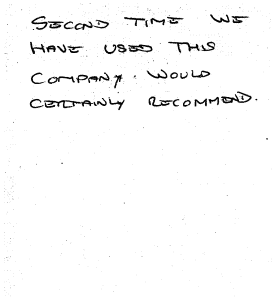 SECOND TIME WE
HAVE USED THIS
COMPANY. WOULD
CERTAINLY RECOMMEND.